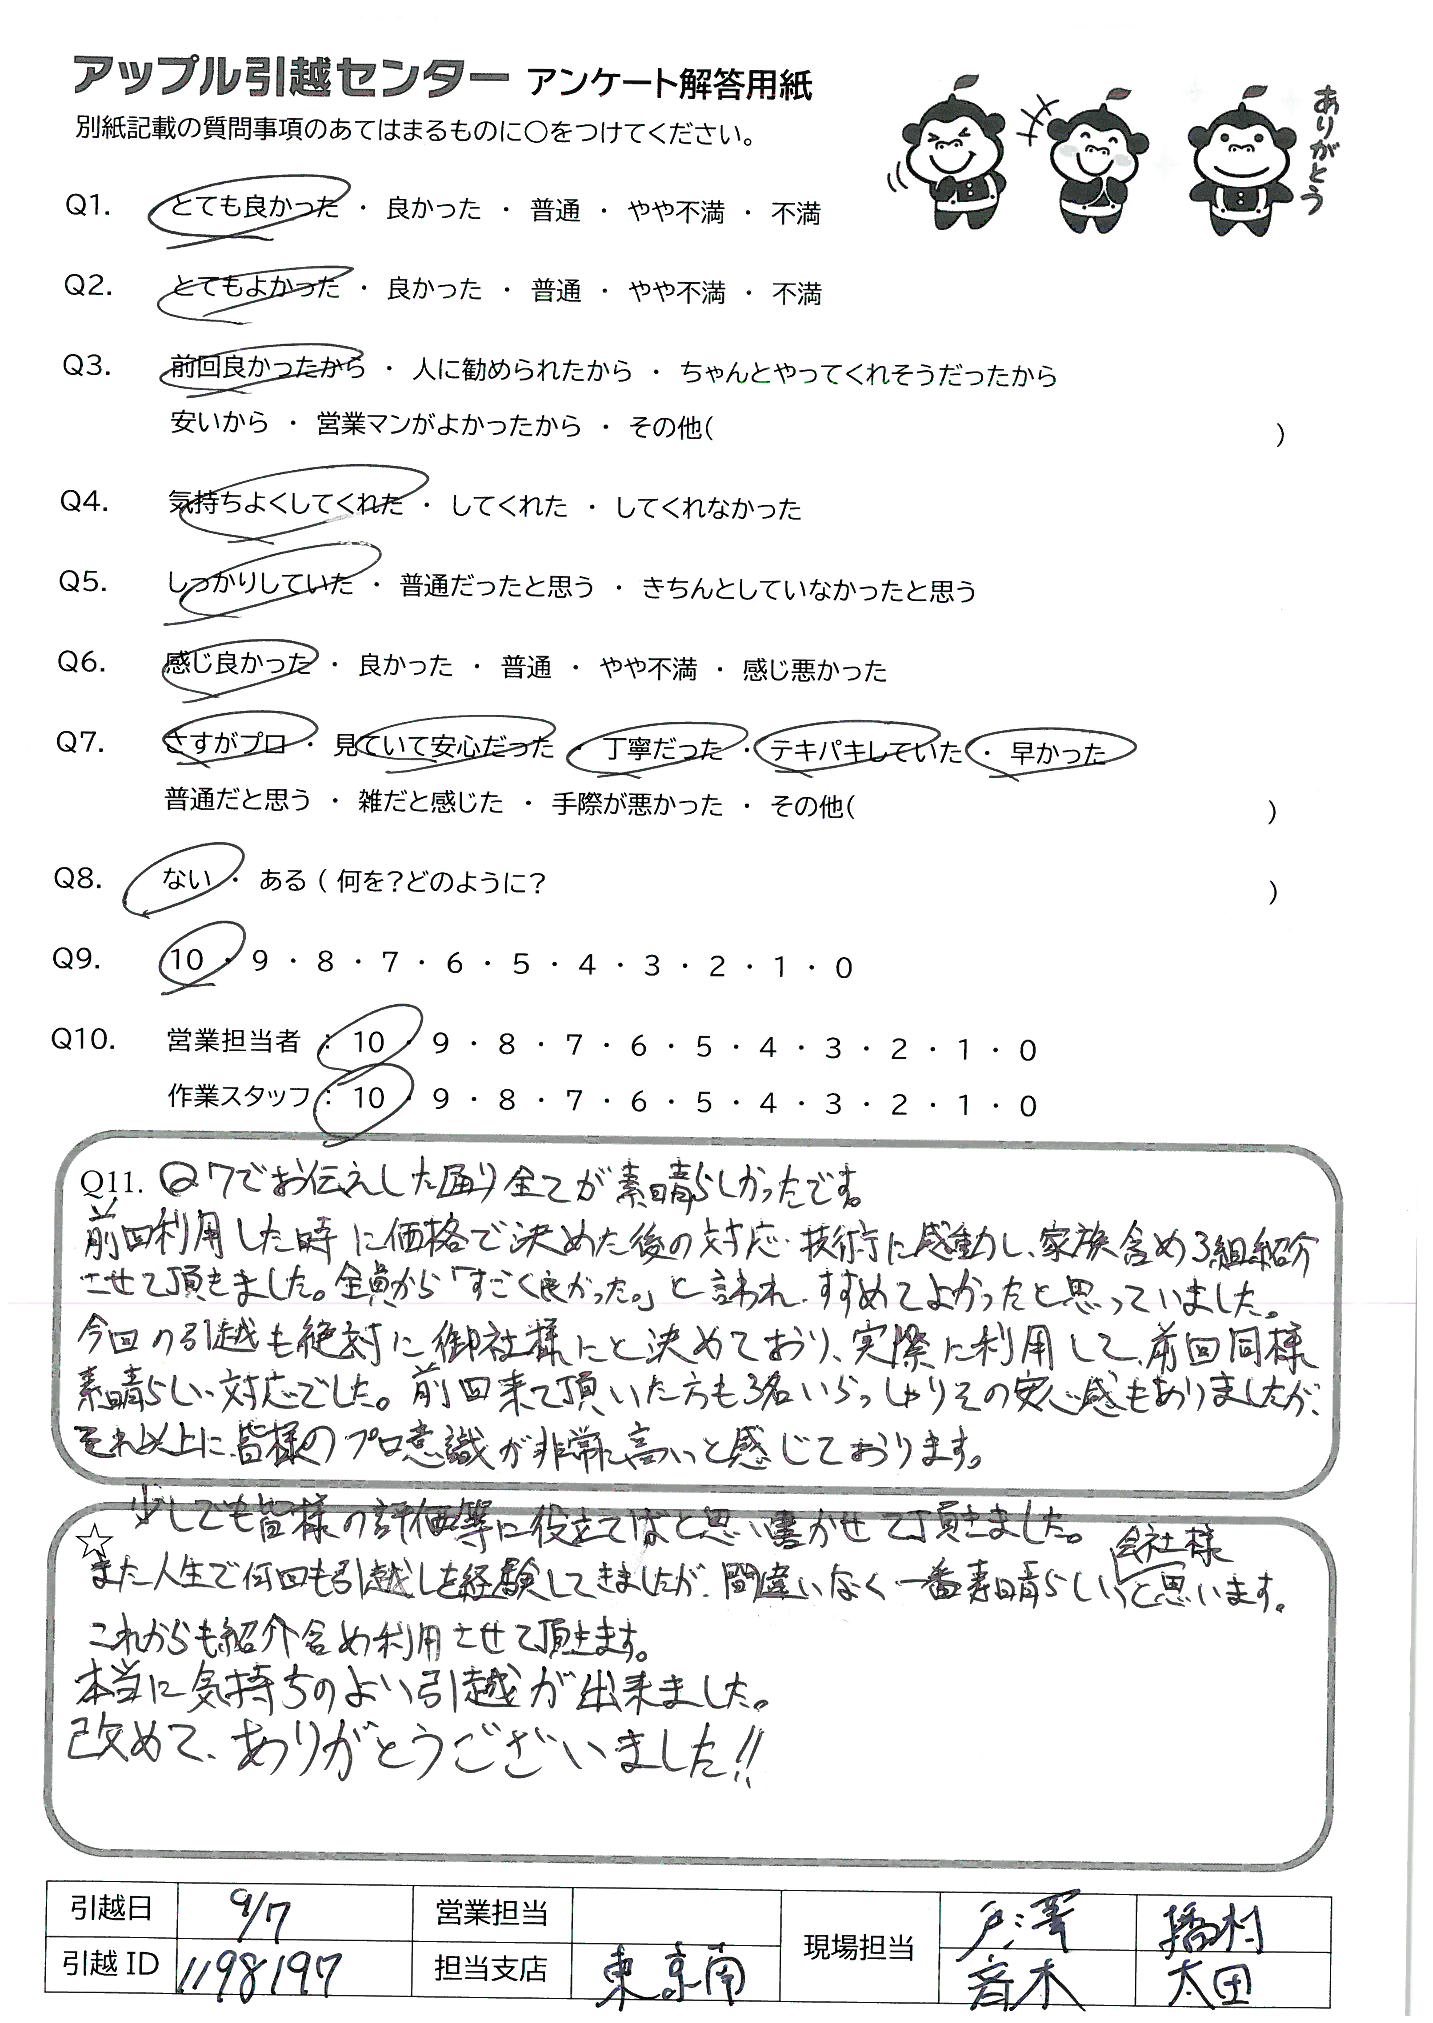 アップル引越センター アンケート解答用紙
別紙記載の質問事項のあてはまるものに〇をつけてください。
ありがとう
Q1. とても良かった ・ 良かった ・ 普通 ・ やや不満 ・ 不満
Q2. とてもよかった ・ 良かった ・ 普通 ・ やや不満 ・ 不満
Q3. 前回良かったから ・ 人に勧められたから ・ ちゃんとやってくれそうだったから
安いから ・ 営業マンがよかったから ・ その他( )
Q4. 気持ちよくしてくれた ・ してくれた ・ してくれなかった
Q5. しっかりしていた ・ 普通だったと思う ・ きちんとしていなかったと思う
Q6. 感じ良かった ・ 良かった ・ 普通 ・ やや不満 ・ 感じ悪かった
Q7. さすがプロ ・ 見ていて安心だった ・ 丁寧だった ・ テキパキしていた ・ 早かった
普通だと思う ・ 雑だと感じた ・ 手際が悪かった ・ その他( )
Q8. ない ・ ある ( 何を?どのように? )
Q9. 10 ・ 9 ・ 8 ・ 7 ・ 6 ・ 5 ・ 4 ・ 3 ・ 2 ・ 1 ・ 0
Q10. 営業担当者 : 10 ・ 9 ・ 8 ・ 7 ・ 6 ・ 5 ・ 4 ・ 3 ・ 2 ・ 1 ・ 0
作業スタッフ : 10 ・ 9 ・ 8 ・ 7 ・ 6 ・ 5 ・ 4 ・ 3 ・ 2 ・ 1 ・ 0
Q11. Q7でお伝えした通り全てが素晴らしかったです。
前回利用した時に価格で決めた後の対応・技術に感動し、家族含め3組紹介
させて頂きました。全員から「すごく良かった。」と言われ、すすめてよかったと思っていました。
今回の引越も絶対に御社様にと決めており、実際に利用して、前回同様
素晴らしい対応でした。前回来て頂いた方も3名いらっしゃりその安心感もありましたが、
それ以上に皆様のプロ意識が非常に高いと感じております。
☆ 少しでも皆様の評価等に役立てばと思い書かせて頂きました。
また人生で何回も引越しを経験してきましたが、間違いなく一番素晴らしい会社様と思います。
これからも紹介含め利用させて頂きます。
本当に気持ちのよい引越が出来ました。
改めて、ありがとうございました!!
引越日 9/7 営業担当 現場担当 戸澤 橋村
引越ID 1198197 担当支店 東京南 斉木 太田